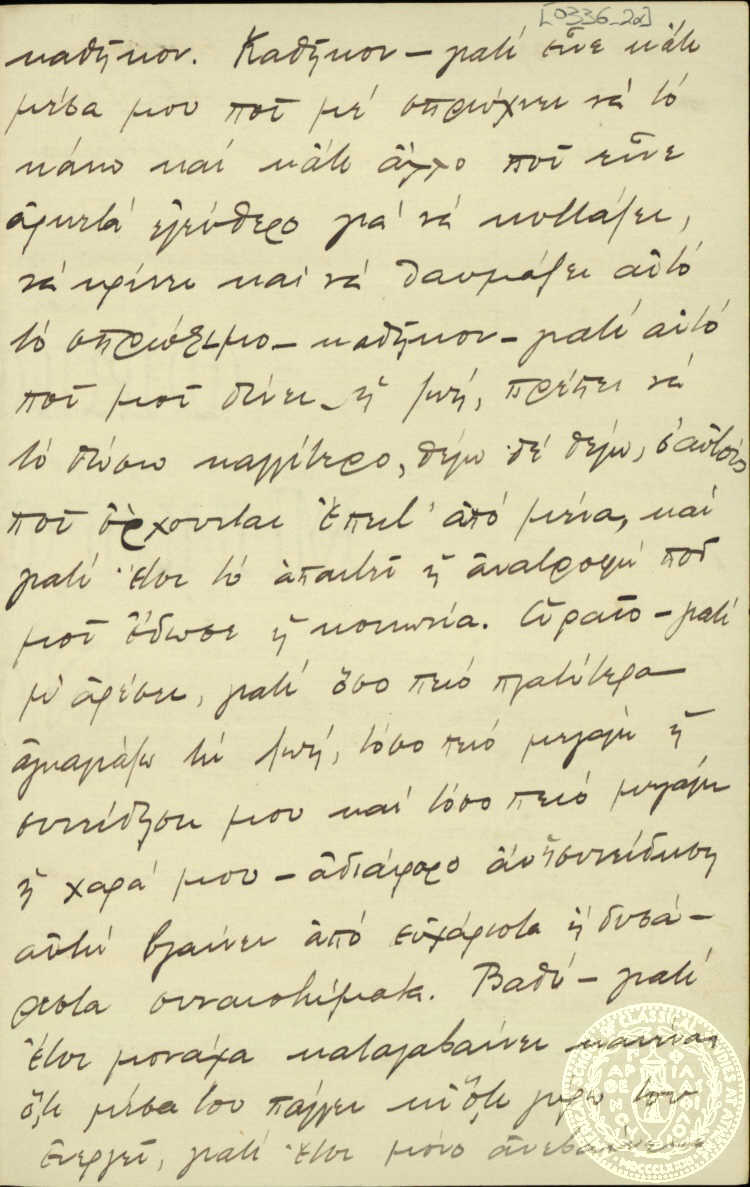 [0336_2α]
καθῆκον. Καθῆκον – γιατί εἶνε κάτι
μέσα μου ποῦ μέ σπρώχνει νά τό
κάνω καί κάτι ἄλλο ποῦ εἶνε
ἀρκετά ἐλεύθερο γιά νά κυττάξει,
νά κρίνει καί νά θαυμάξει αὐτό
τό σπρώξιμο – καθῆκον – γιατί αὐτό
ποῦ μοῦ δίνει ἡ ζωή, πρέπει νά
τό δώσω καλλίτερο, θέλω δέ θέλω, σ' αὐτούς
ποῦ ἔρχονται ἔπειτ' ἀπό μένα, καί
γιατί ἔτσι τό ἀπαιτεῖ ἡ ἀνατροφή ποῦ
μοῦ ἔδωσε ἡ κοινωνία. Ὡραῖο – γιατί
μ' ἀρέσει, γιατί ὅσο πιό πλατύτερα
ἀγκαλιάζω τή ζωή, τόσο πιό μεγάλη ἡ
συνείδηση μου καί τόσο πιό μεγάλη
ἡ χαρά μου – ἀδιάφορο ἄν ἡ συνείδηση
αὐτή βγαίνει ἀπό εὐχάριστα ἤ δυσά-
ρεστα συναισθήματα. Βαθύ – γιατί
ἔτσι μονάχα καταλαβαίνει κανένας
ὅ,τι μέσα του πάλλει κι ὅ,τι γύρω του
ἐνεργεῖ, γιατί ἔτσι μόνο